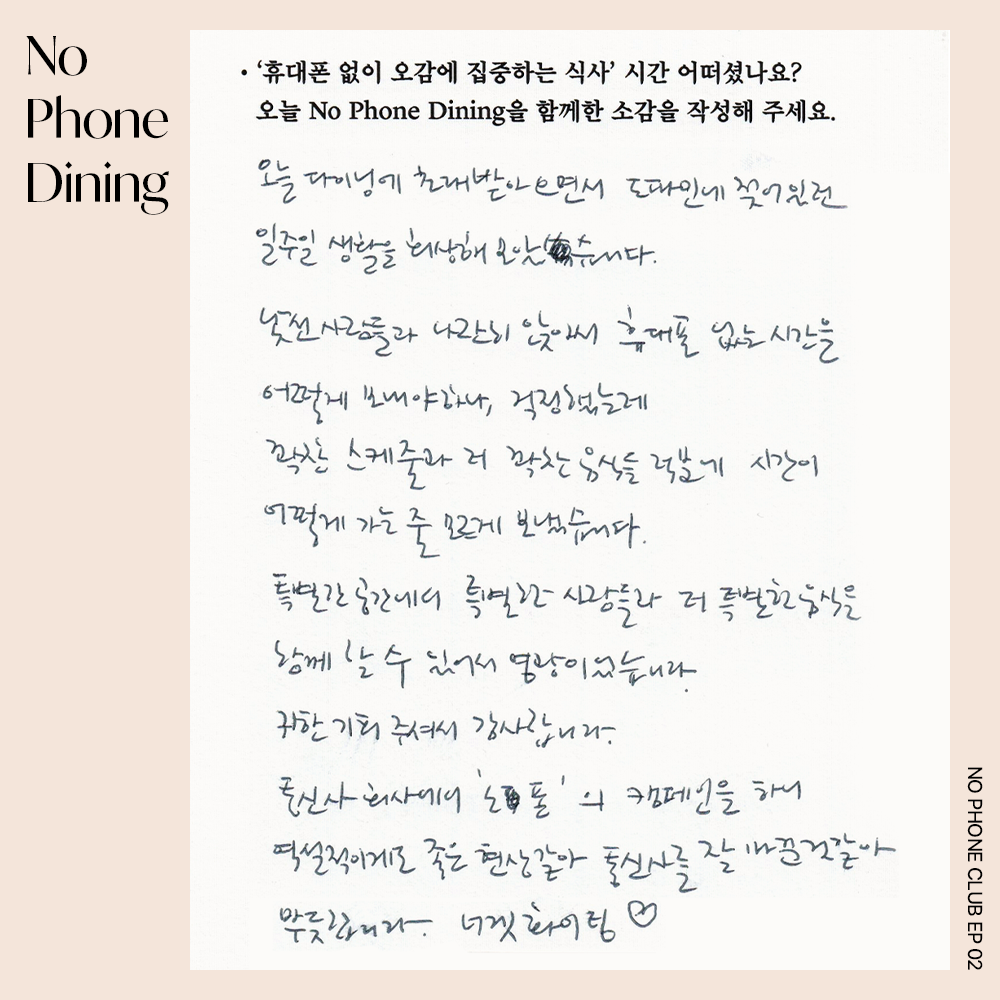 No
Phone
Dining
• ‘휴대폰 없이 오감에 집중하는 식사’ 시간 어떠셨나요?
오늘 No Phone Dining을 함께한 소감을 작성해 주세요.
오늘 다이닝에 초대받아 으면서 도파민에 젖어있던
일주일 생활을 회상해 보았습니다.
낯선 사람들과 나란히 앉아서 휴대폰 없는 시간을
어떻게 보내야하나, 걱정했는데
꽉찬 스케줄과 더 꽉찬 음식들 덕분에 시간이
어떻게 가는 줄 모르게 보냈습니다.
특별한 공간에서 특별한 사람들과 더 특별한 음식을
함께 할 수 있어서 영광이었습니다.
귀한 기회 주셔서 감사합니다.
통신사 회사에서 '노 폰' 의 캠페인을 하니
역설적이게도 좋은 현상같아 통신사를 잘 바꾼것같아
뿌듯합니다. 너겟 화이팅 ♡
NO PHONE CLUB EP 02